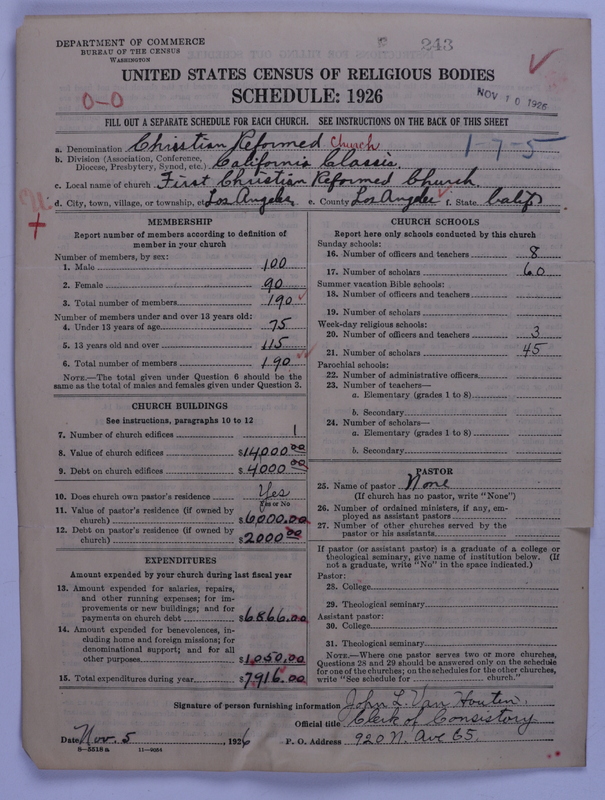 DEPARTMENT OF COMMERCE
BUREAU OF THE CENSUS
WASHINGTON
243
UNITED STATES CENSUS OF RELIGIOUS BODIES
SCHEDULE: 1926
0-0
NOV 10 1926
FILL OUT A SEPARATE SCHEDULE FOR EACH CHURCH. SEE INSTRUCTIONS ON THE BACK OF THIS SHEET
a. Denomination Christian Reformed Church 1-7-5
b. Division (Association, Conference, Diocese, Presbytery, Synod, etc.) California Classis
c. Local name of church First Christian Reformed Church
d. City, town, village, or township, etc. Los Angeles e. County Los Angeles f. State Calif
MEMBERSHIP
Report number of members according to definition of member in your church
Number of members, by sex:
1. Male 100
2. Female 90
3. Total number of members 190
Number of members under and over 13 years old:
4. Under 13 years of age 75
5. 13 years old and over 115
6. Total number of members 190
NOTE.—The total given under Question 6 should be the same as the total of males and females given under Question 3.
CHURCH BUILDINGS
See instructions, paragraphs 10 to 12
7. Number of church edifices 1
8. Value of church edifices $14000.00
9. Debt on church edifices $4000.00
10. Does church own pastor's residence Yes
Yes or No
11. Value of pastor's residence (if owned by church) $6000.00
12. Debt on pastor's residence (if owned by church) $2000.00
EXPENDITURES
Amount expended by your church during last fiscal year
13. Amount expended for salaries, repairs, and other running expenses; for improvements or new buildings; and for payments on church debt $6866.00
14. Amount expended for benevolences, including home and foreign missions; for denominational support; and for all other purposes $1050.00
15. Total expenditures during year $7916.00
CHURCH SCHOOLS
Report here only schools conducted by this church
Sunday schools:
16. Number of officers and teachers 8
17. Number of scholars 60
Summer vacation Bible schools:
18. Number of officers and teachers
19. Number of scholars
Week-day religious schools:
20. Number of officers and teachers 3
21. Number of scholars 45
Parochial schools:
22. Number of administrative officers
23. Number of teachers—
a. Elementary (grades 1 to 8)
b. Secondary
24. Number of scholars—
a. Elementary (grades 1 to 8)
b. Secondary
PASTOR
25. Name of pastor None
(If church has no pastor, write "None")
26. Number of ordained ministers, if any, employed as assistant pastors
27. Number of other churches served by the pastor or his assistants
If pastor (or assistant pastor) is a graduate of a college or theological seminary, give name of institution below. (If not a graduate, write "No" in the space indicated.)
Pastor:
28. College
29. Theological seminary
Assistant pastor:
30. College
31. Theological seminary
NOTE.—Where one pastor serves two or more churches, Questions 28 and 29 should be answered only on the schedule for one of the churches; on the schedules for the other churches, write "See schedule for church."
Signature of person furnishing information John L. Van Houten
Official title Clerk of Consistory
Date Nov. 5, 1926 P. O. Address 920 N. Ave 65.
8—5518 a 11—9054